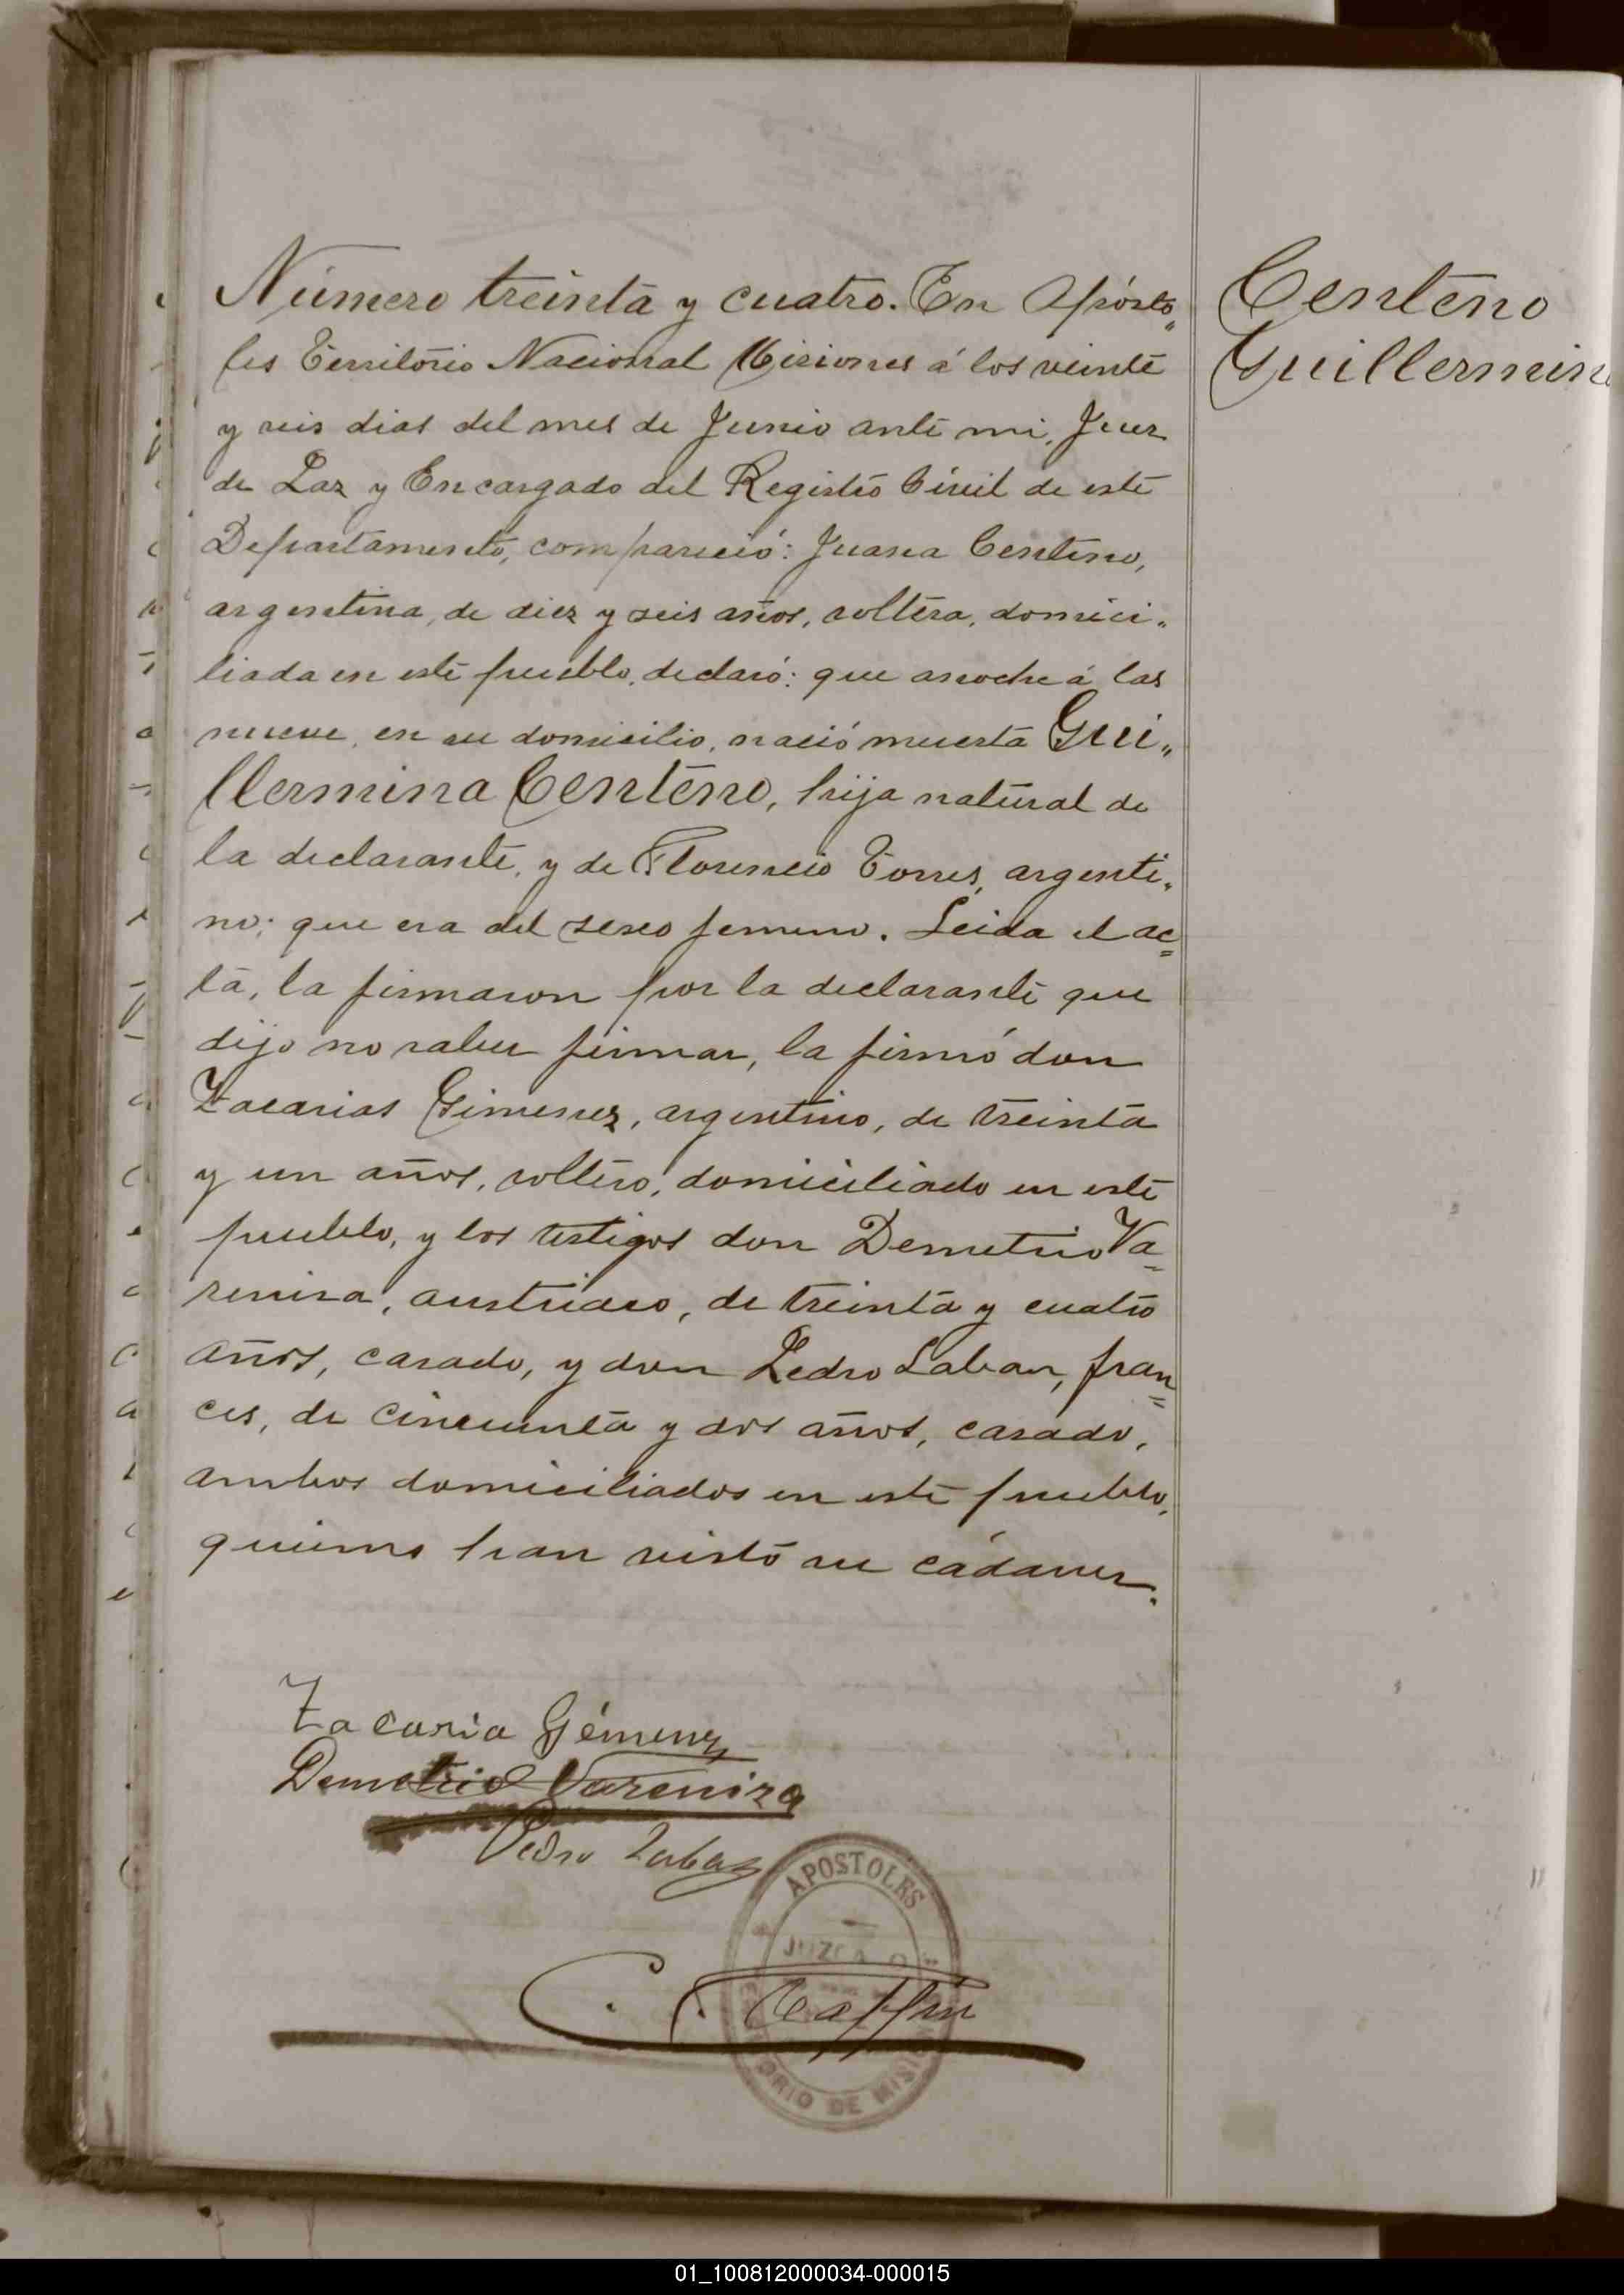 Número treinta y cuatro. En Apósto„
les Territorio Nacional Misiones á los veinte
y seis dias del mes de Junio ante mi, Juez
de Paz y Encargado del Registro Civil de este
Departamento, compareció: Juana Centeno,
argentina, de diez y seis años, soltera, domici„
liada en este pueblo, declaró: que anoche á las
nueve, en su domicilio, nació muerta Gui„
llermina Centeno, hija natural de
la declarante, y de Florencio Torres, argenti„
no; que era del sexo femenino. Leida el ac=
ta, la firmaron por la declarante que
dijo no saber firmar, la firmó don
Zacarias Gimenez, argentino, de treinta
y un años, soltero, domiciliado en este
pueblo, y los testigos don Demetrio Va=
reniza, austriaco, de treinta y cuatro
años, casado, y don Pedro Laban, fran=
ces, de cincuenta y dos años, casado,
ambos domiciliados en este pueblo,
quienes han visto su cádaver.
Centeno
Guillermin
Zacaria Gémenez
Demetrio Vareniza
Pedro Laban
APOSTOLES
JUZGADO
ORIO DE MISIO
01_100812000034-000015